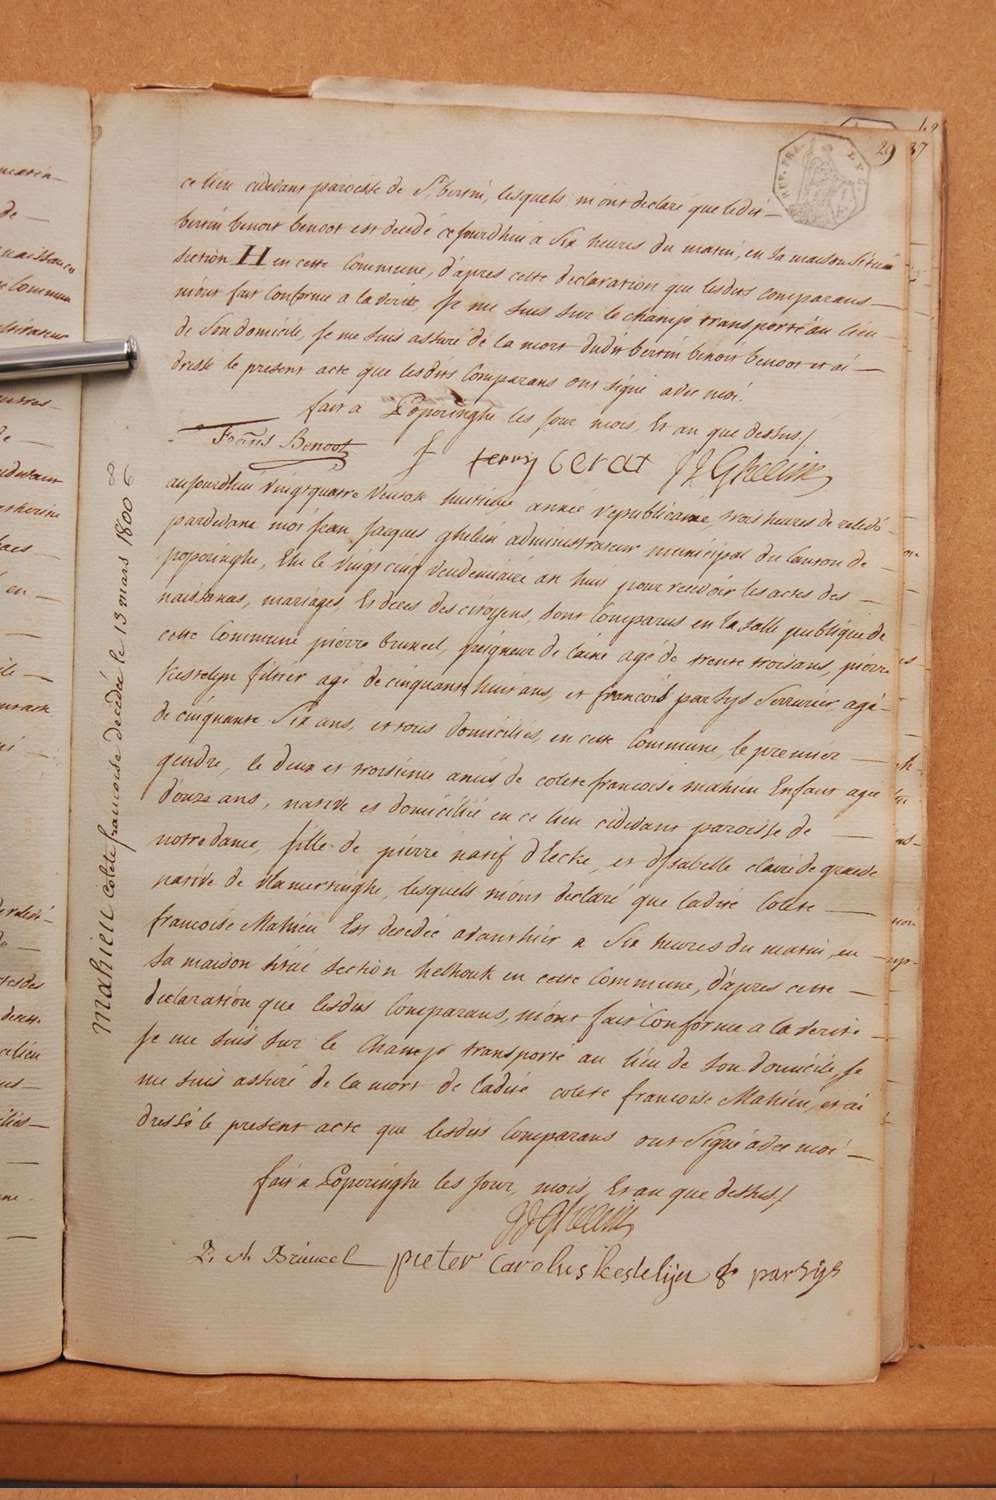 29
37
ce lieu cidevant paroisse de St bertin, lesquels m'ont declaré que ledit —
bertin benoit benoot est decedé ce jourdhui a Six heures du matin, en Sa maison Située
Section H en cette Commune, d'apres cette declaration que lesdits comparans —
m'ont fait Conforme a la verité, Je me Suis Sur le champ transporté au lieu —
de Son domicile, Je me Suis assuré de la mort dudit bertin benoit benoot et ai —
dressé le present acte que lesdits Comparans ont signé avec moi.
fait a Poperinghe les Jour mois, Et an que dessus /
Frans Benoot terry cerat JJ Ghelein
aujourdhui vingt quatre Ventose huitième année republicaine, trois heures de relevé
pardevant moi Jean Jacques ghelein administrateur municipal du Canton de —
poperinghe, Elu le vingt cinq Vendemiaire an huit pour recevoir les actes des —
naissances, mariages Et deces des citoyens, dont Comparus en la Salle publique de
cette Commune pierre bruneel, peigneur de laine agé de trente trois ans, pierre
Kestelyn filtier agé de cinquante huit ans, et francois parsys Serrurier agé —
de cinquante Six ans, et tous domiciliés en cette Commune, le premier —
gendre, le deux et troisième amis de colete francoise mahieu Enfant agée
douze ans, native et domiciliée en ce lieu cidevant paroisse de —
notre dame, fille de pierre natif d'Ecke, et d'Isabelle claire de graeve
native de vlamertinghe, lesquels m'ont declaré que ladite Colete —
francoise Mahieu Est decedée avanthier a Six heures du matin, en —
Sa maison Située Section helhouk en cette Commune, d'apres cette —
declaration que lesdits Comparans, m'ont fait Conforme a la verité —
Je me Suis Sur le Champ transporté au lieu de Son domicile, Je
me Suis assuré de la mort de ladite colete francoise Mahieu, et ai
dressé le present acte que lesdits Comparans ont Signé avec moi —
fait a Poperinghe les Jour, mois, Et an que dessus /
JJ Ghelein
P. Bruneel pieter carolus kestelijn fr parsijs
Mahieu colete francoise decédée le 13 mars 1800